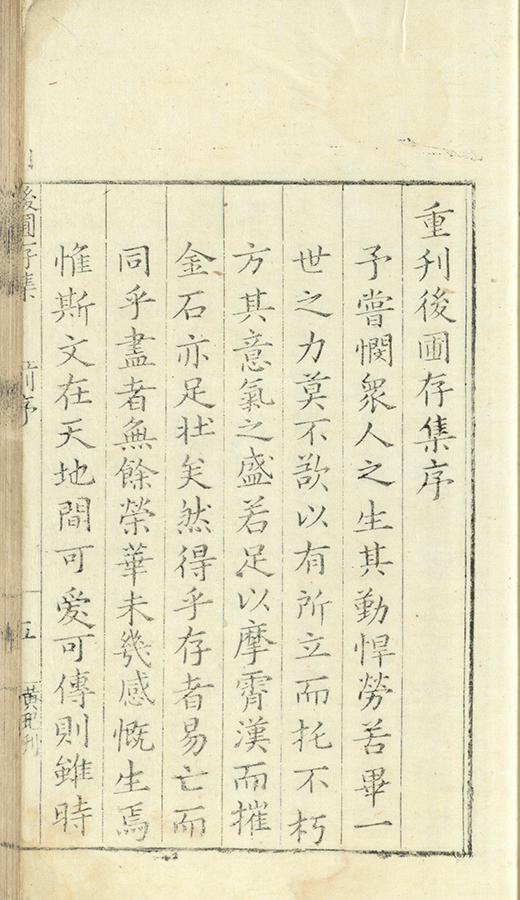 重刋後圃存集序
予嘗憫衆人之生其勤悍勞苦畢一
世之力莫不歆以有所立而托不朽
方其意氣之盛若足以摩霄漢而摧
金石亦足壯矣然得乎存者易亡而
同乎盡者無餘榮華未幾感慨生焉
惟斯文在天地間可愛可傳則雖時
後圃存集
前序
五